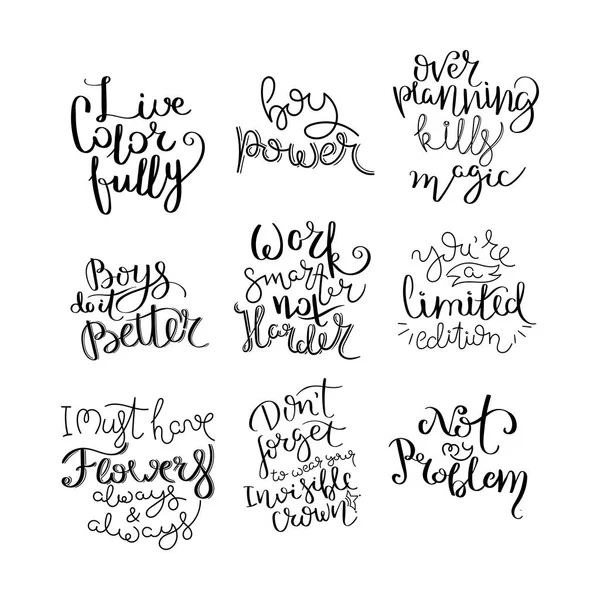 Live
Color
fully
boy
power
over
planning
kills
magic
Boys
do it
Better
Work
smarter
not
Harder
you're
a
limited
edition
I Must have
Flowers
always
&
always
Don't
forget
to wear your
Invisible
crown
Not
my
Problem